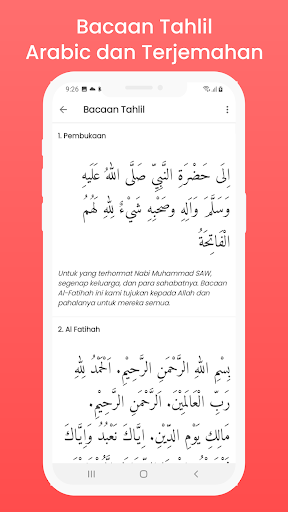 Bacaan Tahlil
Arabic dan Terjemahan
9:26
Bacaan Tahlil
1. Pembukaan
اِلَى حَضْرَةِ النَّبِيِّ صَلَّى اللهُ عَلَيْهِ
وَسَلَّمَ وَاٰلِهِ وصَحْبِهِ شَيْءٌ لِلهِ لَهُمُ
الْفَاتِحَةُ
Untuk yang terhormat Nabi Muhammad SAW,
segenap keluarga, dan para sahabatnya. Bacaan
Al-Fatihah ini kami tujukan kepada Allah dan
pahalanya untuk mereka semua.
2. Al Fatihah
بِسْمِ اللهِ الرَّحْمَنِ الرَّحِيْمِ. اَلْحَمْدُ لِلهِ
رَبِّ الْعَالَمِيْنَ. اَلرَّحْمَنِ الرَّحِيْمِ.
مَالِكِ يَوْمِ الدِّيْنِ. اِيَّاكَ نَعْبُدُ وَاِيَّاكَ